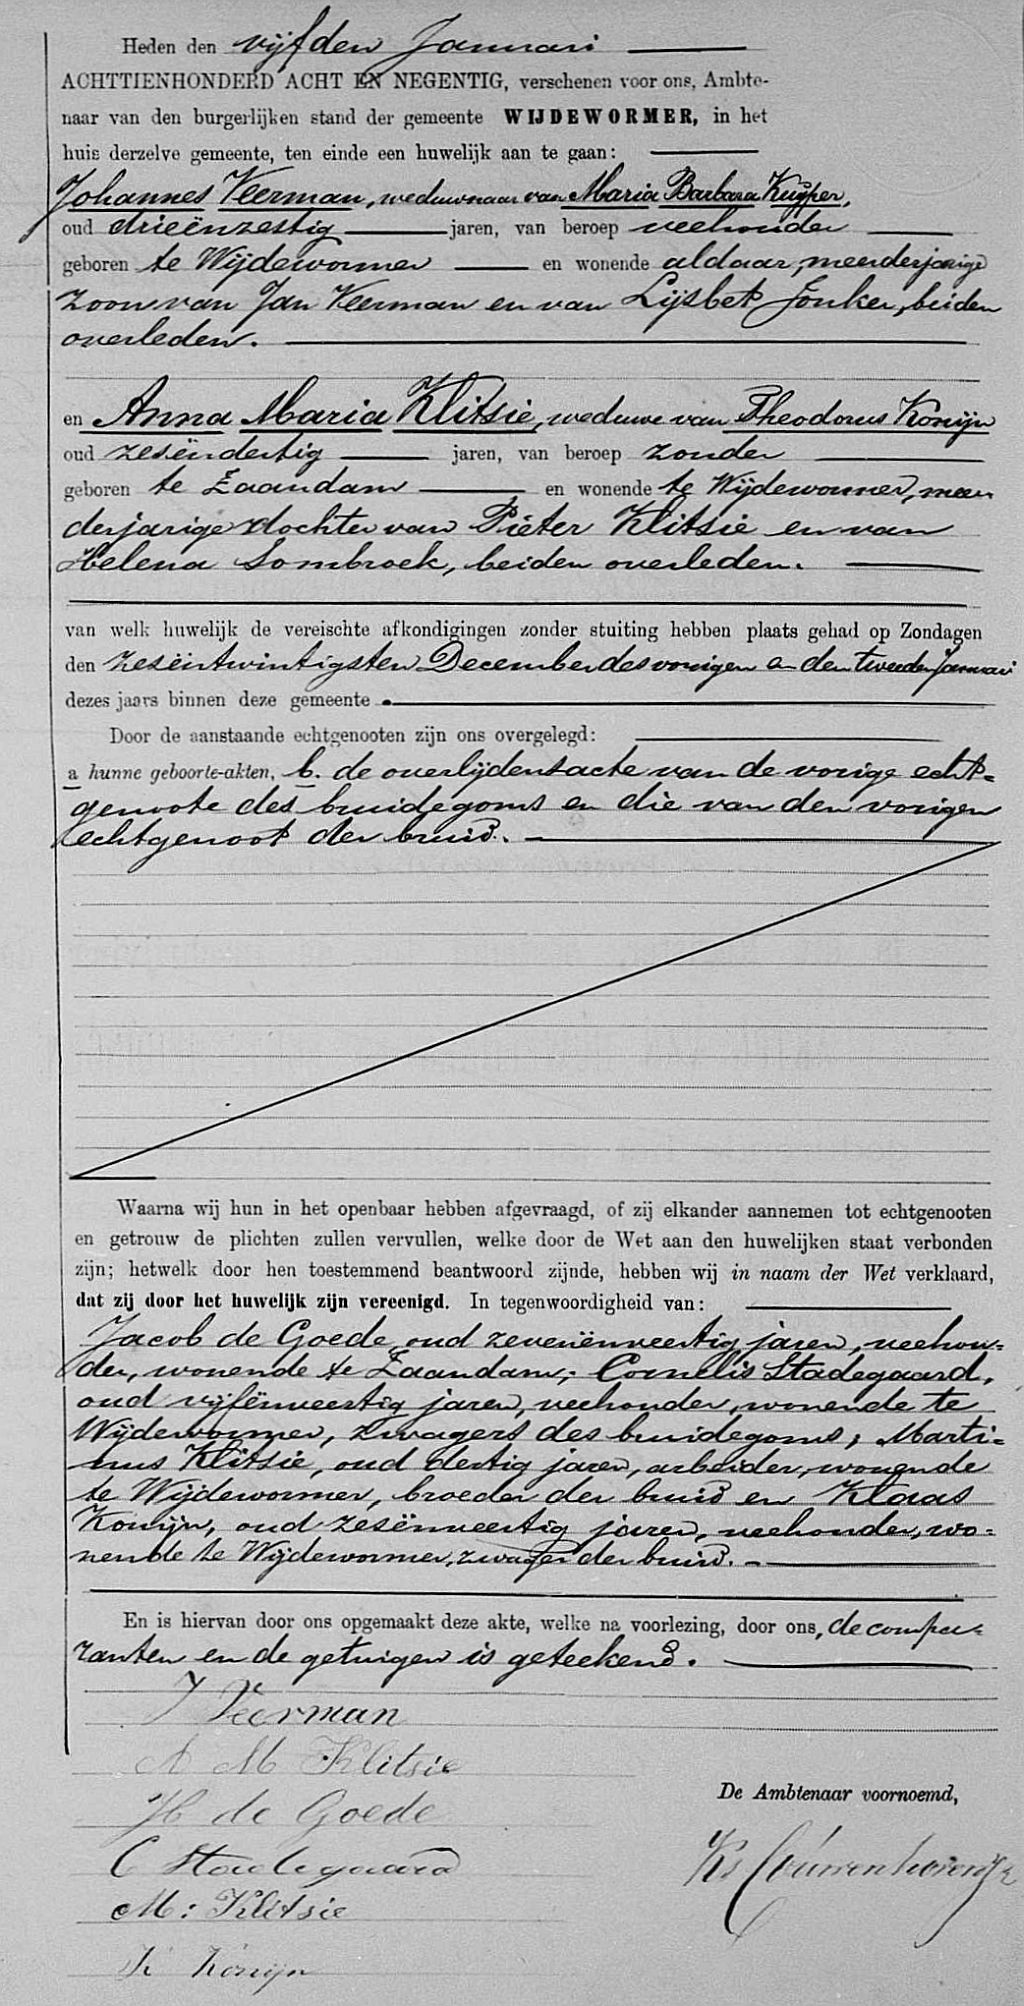 Heden den vijfden Januari
ACHTTIENHONDERD ACHT EN NEGENTIG, verschenen voor ons, Ambte-
naar van den burgerlijken stand der gemeente WIJDEWORMER, in het
huis derzelve gemeente, ten einde een huwelijk aan te gaan:
Johannes Veerman, weduwnaar van Maria Barbara Kuijper,
oud drieënzestig jaren, van beroep veehouder
geboren te Wijdewormer en wonende aldaar, meerderjarige
zoon van Jan Veerman en van Lijsbet Jonker, beiden
overleden.
en Anna Maria Klitsie, weduwe van Theodorus Konijn
oud zesëndertig jaren, van beroep zonder
geboren te Zaandam en wonende te Wijdewormer, meer
derjarige dochter van Pieter Klitsie en van
Helena Sombroek, beiden overleden.
van welk huwelijk de vereischte afkondigingen zonder stuiting hebben plaats gehad op Zondagen
den zesëntwintigsten December des vorigen en den tweeden Januari
dezes jaars binnen deze gemeente.
Door de aanstaande echtgenooten zijn ons overgelegd:
a hunne geboorte-akten, b. de overlijdensacte van de vorige echt-
genoote des bruidegoms en die van den vorigen
echtgenoot der bruid.
Waarna wij hun in het openbaar hebben afgevraagd, of zij elkander aannemen tot echtgenooten
en getrouw de plichten zullen vervullen, welke door de Wet aan den huwelijken staat verbonden
zijn; hetwelk door hen toestemmend beantwoord zijnde, hebben wij in naam der Wet verklaard,
dat zij door het huwelijk zijn vereenigd. In tegenwoordigheid van:
Jacob de Goede, oud zevenënveertig jaren, veehou-
der, wonende te Zaandam; Cornelis Stadegaard,
oud vijfënveertig jaren, veehouder, wonende te
Wijdewormer, zwagers des bruidegoms; Marti-
nus Klitsie, oud dertig jaren, arbeider, wonende
te Wijdewormer, broeder der bruid en Klaas
Konijn, oud zesënveertig jaren, veehouder, wo-
nende te Wijdewormer, zwager der bruid.
En is hiervan door ons opgemaakt deze akte, welke na voorlezing, door ons, de compa-
ranten en de getuigen is geteekend.
J Veerman
A M Klitsie
De Ambtenaar voornoemd,
de Goede
C Stadegaard
M: Klitsie
K Konijn